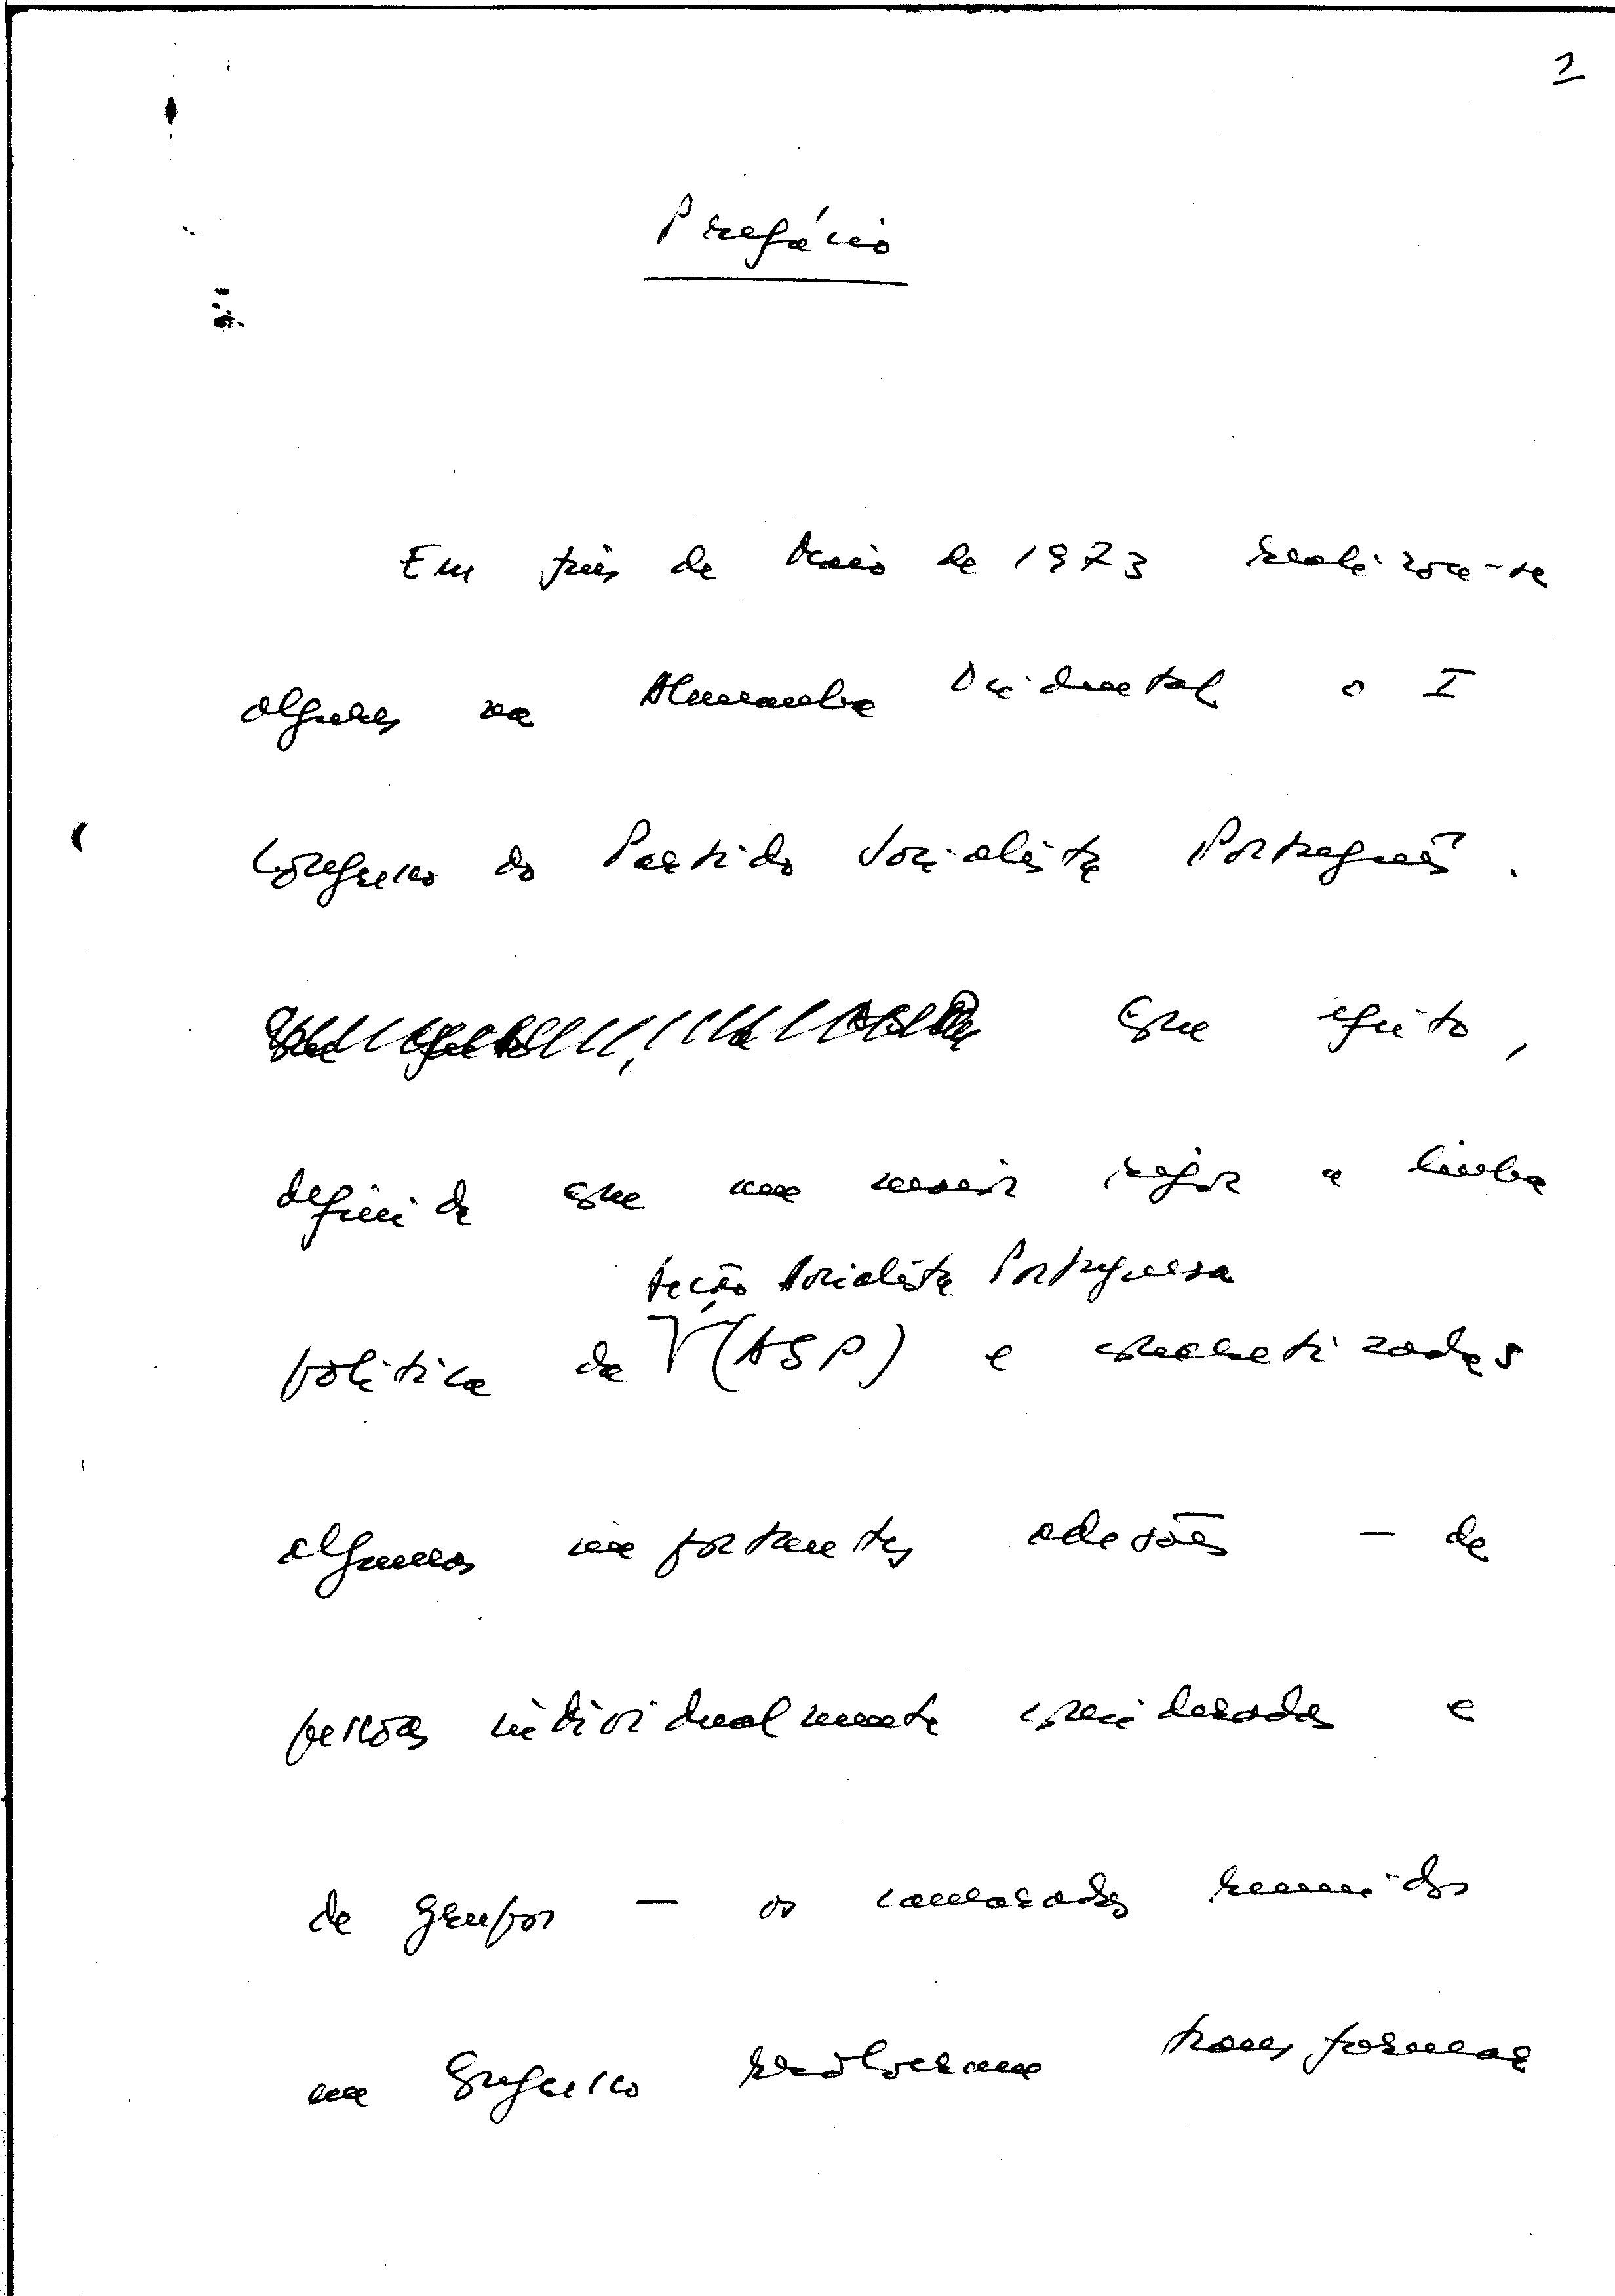 1
Prefácio
Em fins de Maio de 1973 realizou-se
algures na Alemanha Ocidental o I
Congresso do Partido Socialista Português.
Com efeito,
definida com maior rigor a linha
Acção Socialista Portuguesa
política da (ASP) e concretizadas
algumas importantes adesões — de
pessoas individualmente consideradas e
de grupos — os camaradas reunidos
em Congresso resolveram transformar